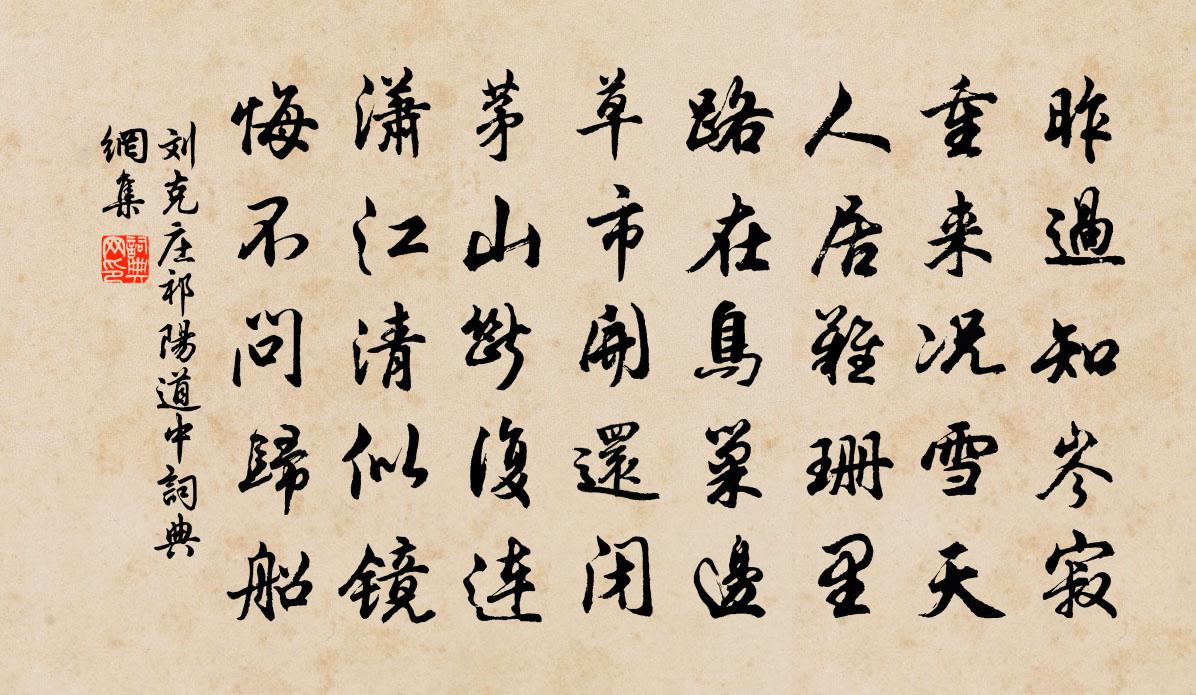 昨過知岑寂
重来况雪天
人居難珊里
路在鳥巢邊
草市開還闭
茅山斷復連
瀟江清似鏡
悔不問歸船
刘克庄祁陽道中詞典
網集
詞典网印